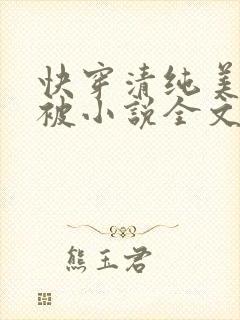 快穿清纯美
被小说全文
熊玉君